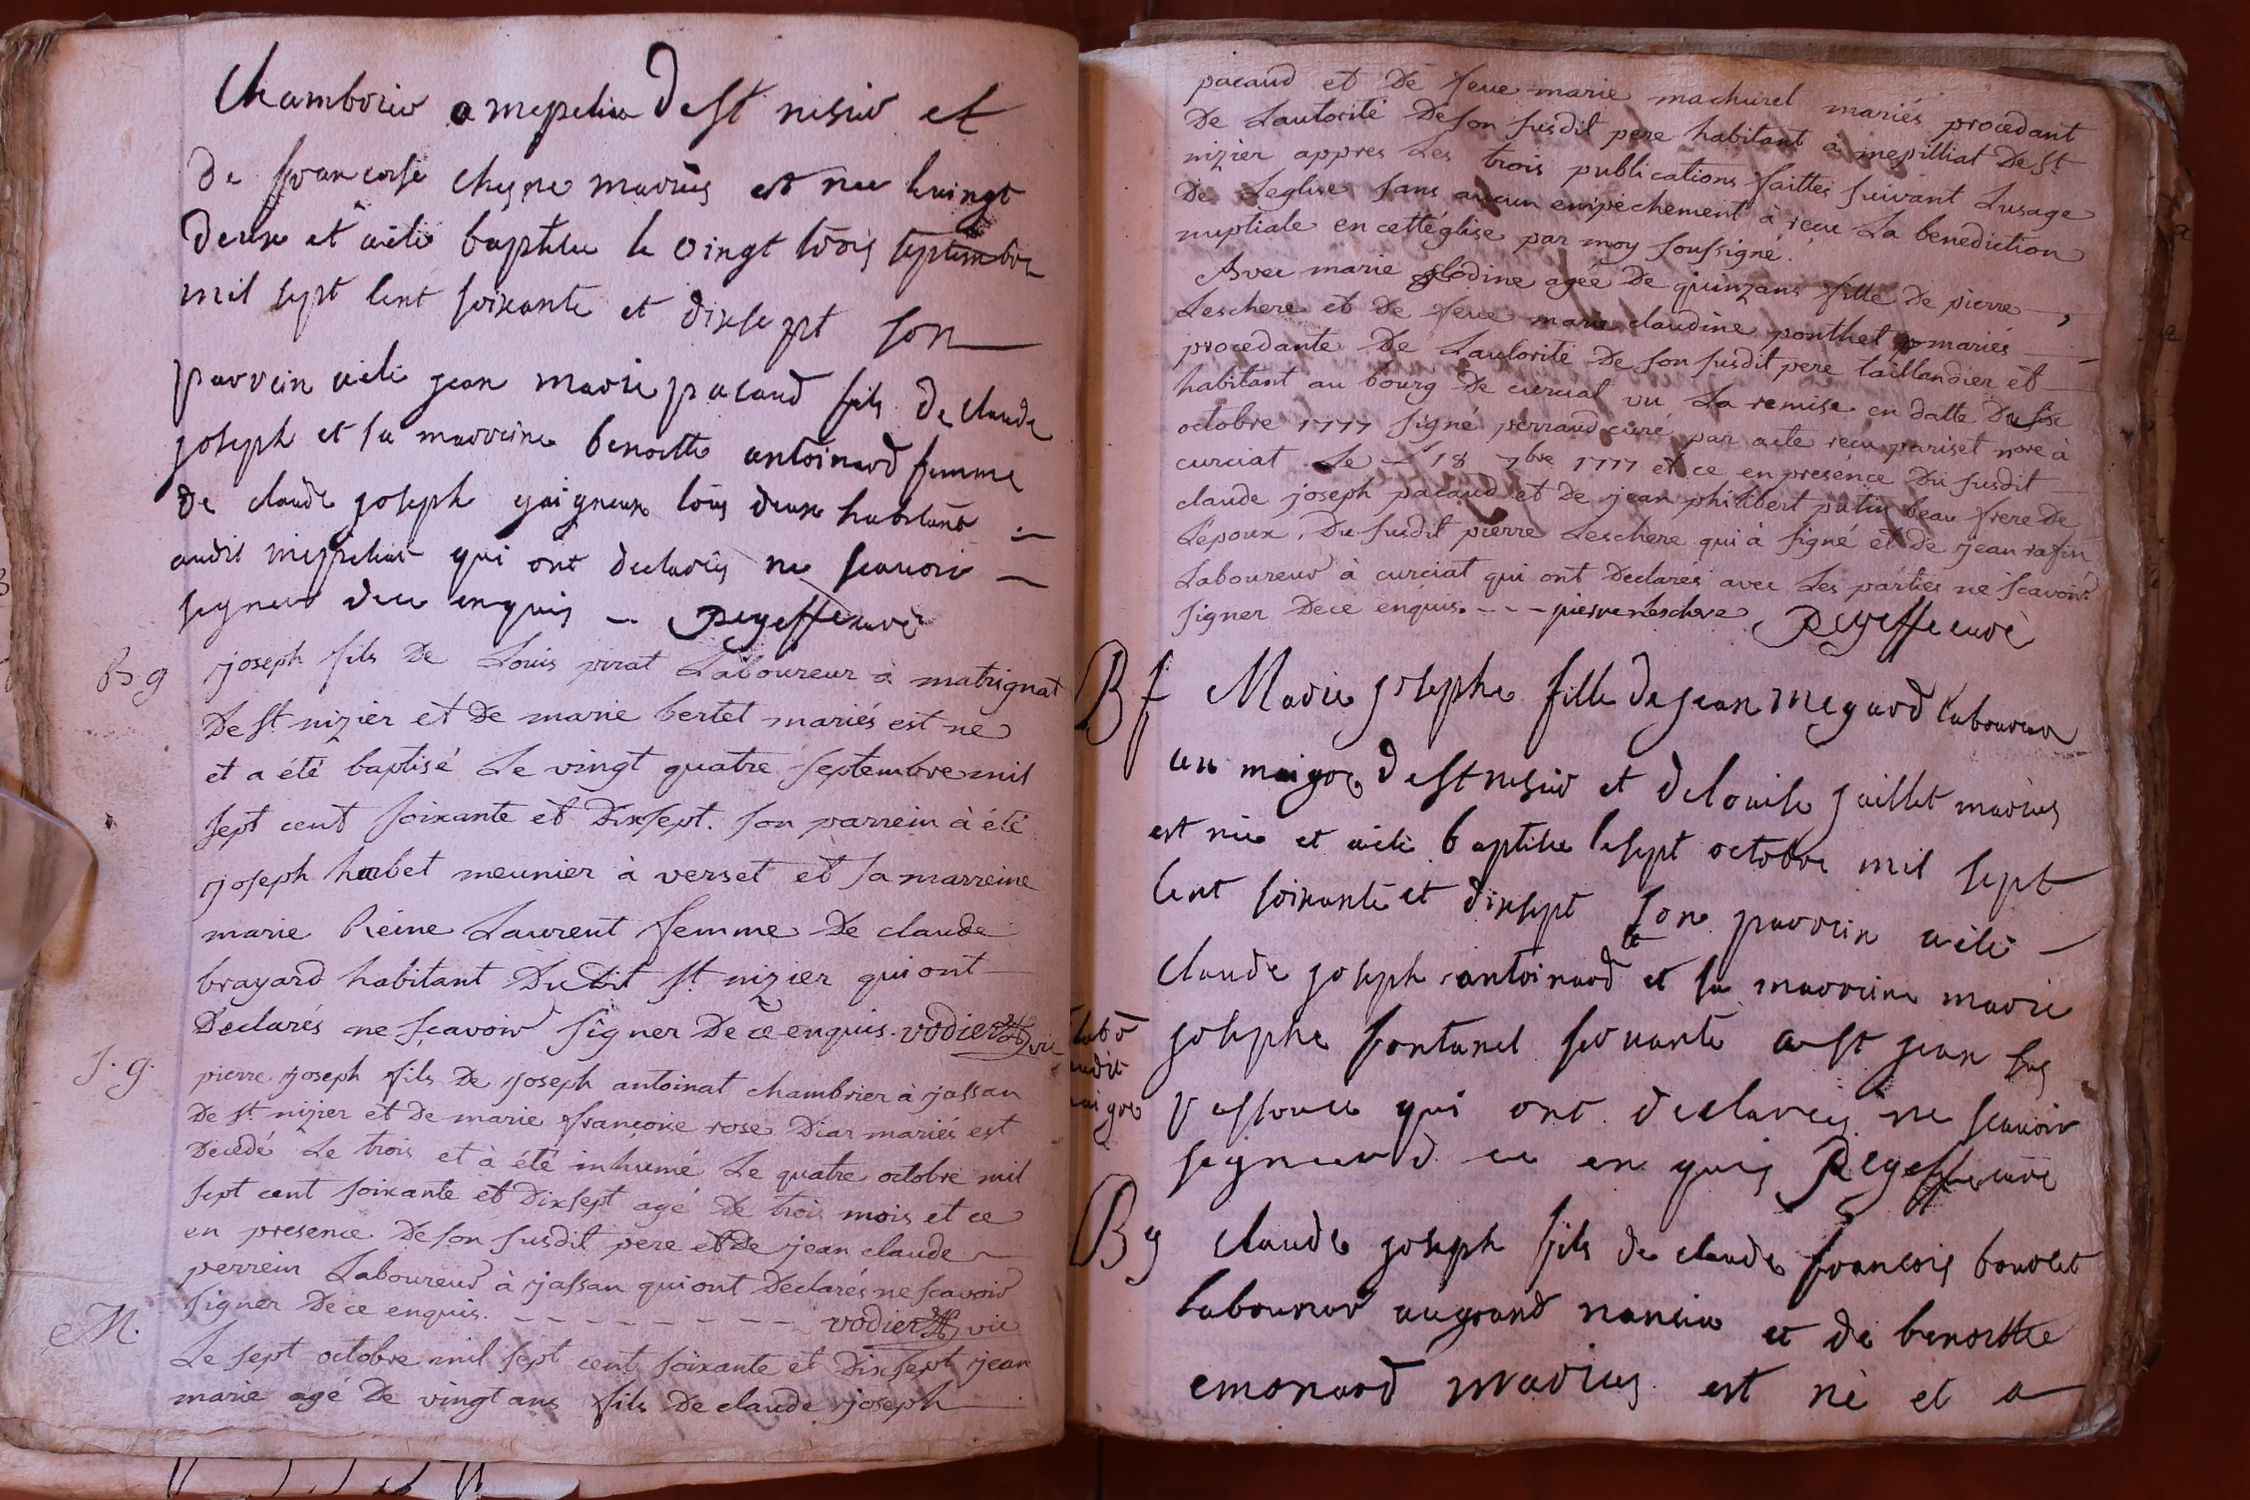 Chambrier a mepelia de st nisier et
de francoise cheyne mariés est nee le vingt
deux et a été baptisee le vingt trois septembre
mil sept cent soixante et dixsept son
parrein a été jean marie pacaud fils de claude
joseph et sa marreine benoitte antoinard femme
de claude joseph gaigneux tous deux habitant
audit mepeliat qui ont declarés ne scavoir
segner de ce enquis Reyeffe curé
B g joseph fils De Louis pirat Laboureur à matrignat
De St nizier et De marie bertet mariés est né
et a été baptisé Le vingt quatre septembre mil
sept cent soixante et Dixsept. son parrein à été
joseph hubet meunier à verset et sa marreine
marie Reine Laurent femme De claude
brayard habitant Dudit St nizier qui ont
Declarés ne sçavoir signer De ce enquis. vodier vic
S. g. pierre joseph fils De joseph antoinat chambrier à jassan
De St nizier et De marie françoise rose Diar mariés est
Decedé Le trois et à été inhumé Le quatre octobre mil
sept cent soixante et Dixsept agé De trois mois et ce
en presence De son susdit pere et De jean claude
perrein Laboureur à jassan qui ont Declarés ne scavoir
signer De ce enquis. vodier vic
M. Le sept octobre mil sept cent soixante et Dixsept jean
marie agé De vingt ans fils De claude joseph
pacaud et De feue marie machurel mariés procedant
De Lautorité De son susdit pere habitant à mepilliat De St
nizier appres Les trois publications faittes suivant Lusage
De Leglise sans aucun empechement à reçu La benediction
nuptiale en cette église par moy soussigné.
Avec marie clodine agée De quinzans fille De pierre
Leschere et De feue marie claudine ponthet mariés
procedante De Lautorité De son susdit pere taillandier et
habitant au bourg De curciat vu La remise en datte Du six
octobre 1777 signé perraud curé par acte reçu pariset nore à
curciat Le 18 7bre 1777 et ce en presénce Du susdit
claude joseph pacaud et de jean philibert putin beau frere De
Lépoux, Du susdit pierre Leschere qui à signé et de jean rafin
Laboureur à curciat qui ont Declarés avec Les parties ne scavoir
signer De ce enquis. pierre leschere Reyeffe curé
B f Marie josephe fille de jean megard laboureur
au maigre de st nisier et de louise guillet mariés
est née et a été baptisee le sept octobre mil sept
cent soixante et dixsept son parrein a été
claude joseph antoinard et sa marreine marie
labr
audit
maigre
josephe fontanel servante a st jean sus
ressouce qui ont declarés ne scavoir
segner de ce enquis Reyeffe curé
B g claude joseph fils de claude francois bouvet
laboureur au grand nancin et de benoitte
emonard mariés est né et a